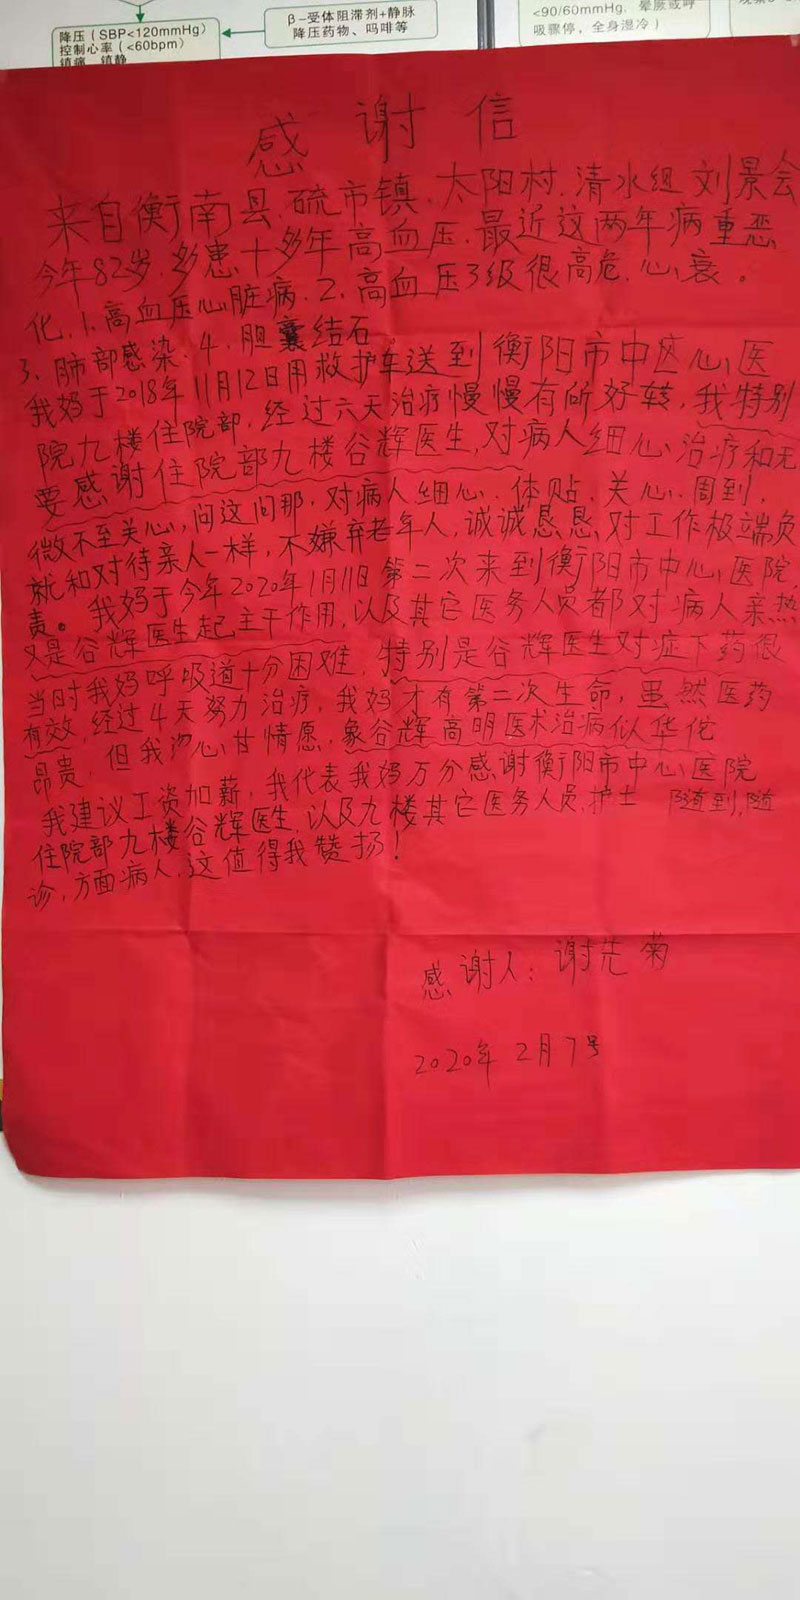 降压（SBP<120mmHg）
控制心率（<60bpm）
镇痛、镇静
β-受体阻滞剂+静脉
降压药物、吗啡等
<90/60mmHg、晕厥或呼
吸骤停，全身湿冷）
感谢信
来自衡南县、硫市镇、太阳村、清水组刘景会
今年82岁、多患十多年高血压、最近这两年病重恶
化、1、高血压心脏病、2、高血压3级很高危、心衰。
3、肺部感染、4、胆囊结石。
我妈于2018年11月12日用救护车送到衡阳市中区心医
院九楼住院部，经过六天治疗慢慢有所好转，我特别
要感谢住院部九楼谷辉医生，对病人细心治疗和无
微不至关心，问这问那，对病人细心、体贴、关心、周到，
就和对待亲人一样，不嫌弃老年人，诚诚恳恳对工作极端负
责。我妈于今年2020年1月11日第二次来到衡阳市中心医院，
又是谷辉医生起主干作用，以及其它医务人员都对病人亲热
当时我妈呼吸道十分困难，特别是谷辉医生对症下药很
有效，经过4天努力治疗，我妈才有第二次生命，虽然医药
昂贵，但我沕心甘情愿，象谷辉高明医术治病似华佗
我建议工资加薪，我代表我妈万分感谢衡阳市中心医院
住院部九楼谷辉医生，以及九楼其它医务人员，护士 随到，随
诊，方面病人，这值得我赞扬！
感谢人：谢先菊
2020年2月7号